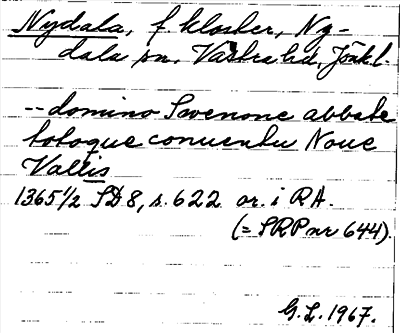 Nydala, f. kloster, Ny-
dala sn, Västra hd, Jönk l.
-- domino Swenone abbate
totoque conuentu Noue
Vallis
1365 1/2 SD 8, s. 622 or. i RA.
(= SRP nr 644).
G.L. 1967.